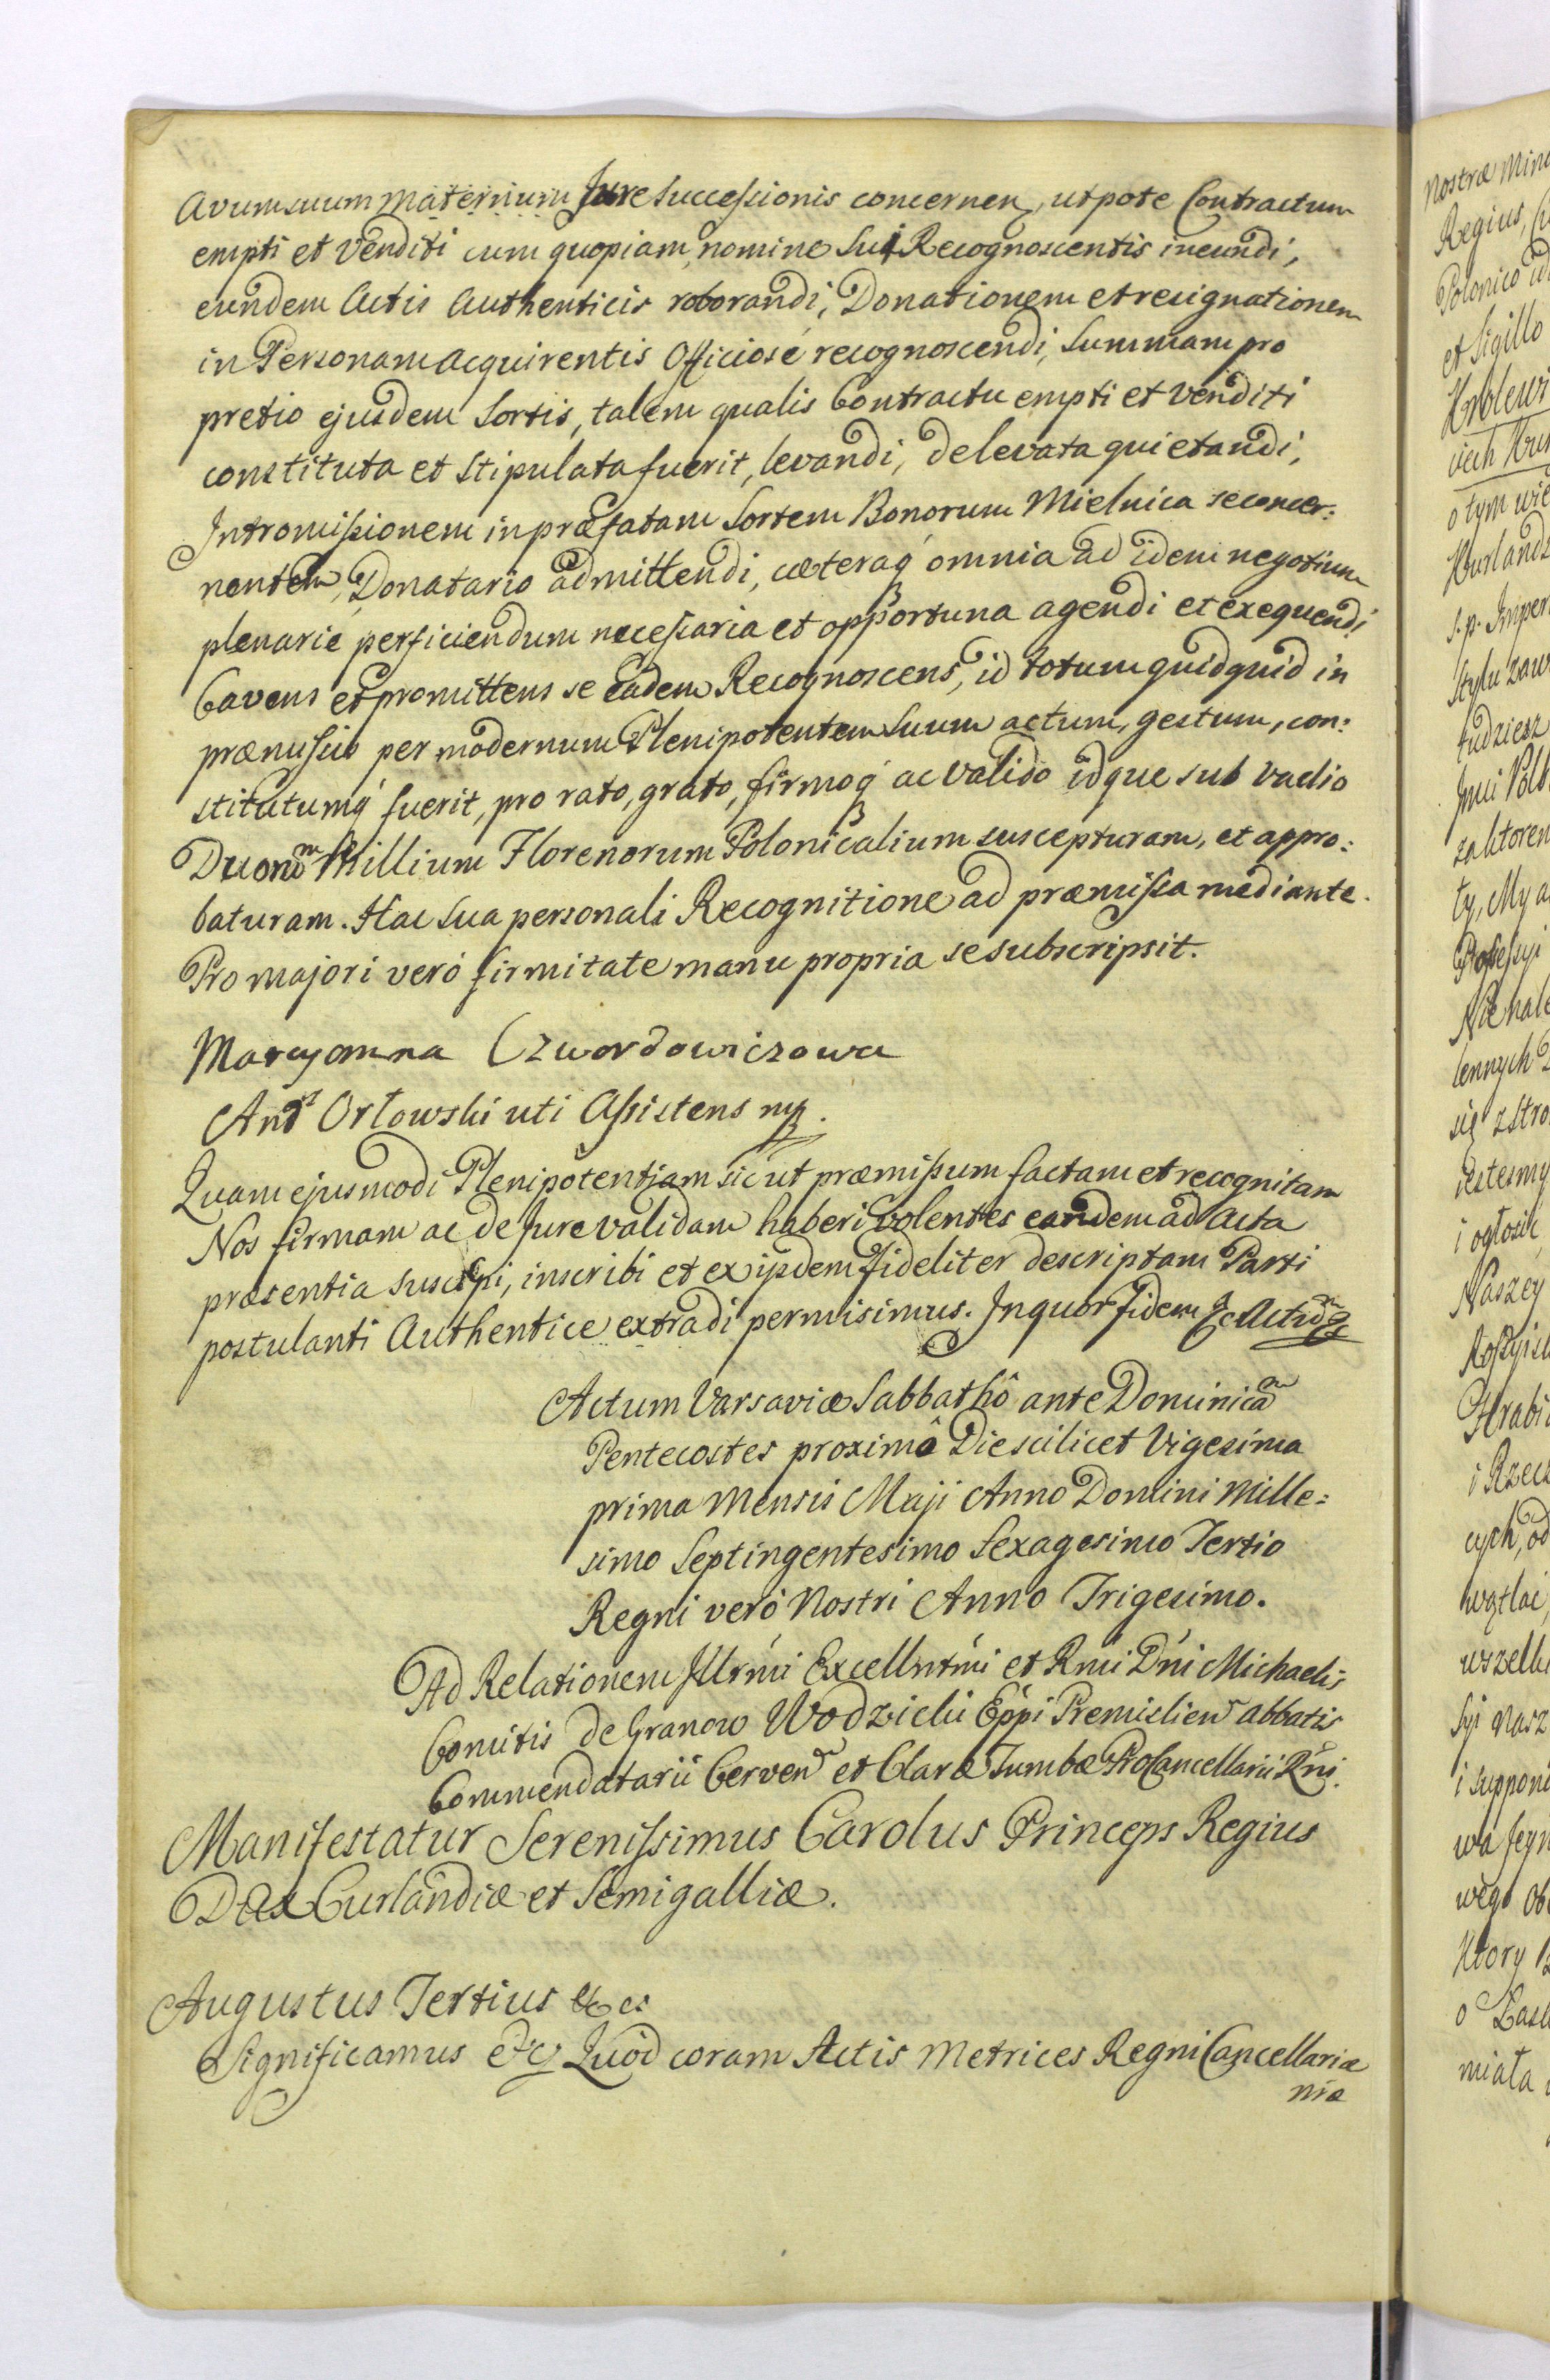 Avum suum maternum Jure Successionis concernen, utpote Contractum
empti et venditi cum quopiam, nomine Sui Recognoscentis ineundi,
eundem Actis Authenticis roborandi, Donationem et resignationem
in Personam acquirentis Officiosé recognoscendi, Summam pro
pretio ejusdem Sortis, talem qualis Contractu empti et venditi
constituta et Stipulata fuerit, levandi, de levata quietandi,
Intromissionem in præfatam Sortem Bonorum Mielnica se concer:
nentem, Donatario admittendi, cæteraq́ omnia ad idem negotium
plenarie perficiendum necessaria et opportuna agendi et exequendi
Cavens et promittens se Eadem Recognoscens, id totum quidquid in
præmissis per modernum Plenipotentem Suum actum, gestum, con:
stitutumq́ fuerit, pro rato, grato, firmoq́ ac valido idque sub vadio
Duorũ Millium Florenorum Polonicalium suscepturam, et appro:
baturam. Hac Sua personali Recognitione ad præmissa mediante.
Pro majori veró firmitate manu propria se subscripsit.
Maryanna Czwordowiczowa
And Orłowski uti Assistens mp.
Quam ejusmodi Plenipotentiam sic ut præmissum factam et recognitam
Nos firmam ac de Jure validam haberi volentes eandem ad Acta
præsentia suscipi, inscribi et ex ijsdem fideliter descriptam Parti
postulanti Authentice extradi permisimus. In quor fidem &c Actum
Actum Varsaviæ Sabbathô ante Dominicam
Pentecostes proximô Die scilicet Vigesima
prima Mensis Maji Anno Domini Mille:
simo Septingentesimo Sexagesimo Tertio
Regni veró Nostri Anno Trigesimo.
Ad Relationem Illrmi Excellntmi et Rmi Dni Michaelis
Comitis de Granow Wodzicki Eppi Premislien Abbatis
Commendatarii Cerven et Claræ Tumbæ ProCancellarii Rni.
Manifestatur Serenissimus Carolus Princeps Regius
Dux Curlandiæ et Semigalliæ.
Augustus Tertius &c
Significamus &c Quod coram Actis Metrices Regni Cancellariæ
niæ